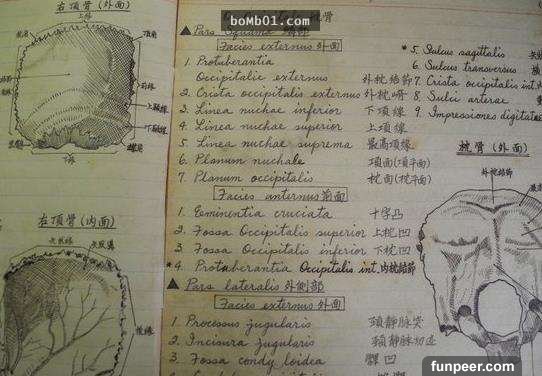 右頂骨(外面)
上緣
前緣
上顳線
下顳線
下緣
右頂骨(内面)
boMb01.com
枕骨
▲ Pars
Facies externus 外面
1. Protuberantia
Occipitalic externus 外枕結節
2. Crista occipitalis externus 外枕嵴
3. Linea nuchae inferior 下項線
4. Linea nuchae superior 上項線
5. Linea nuchae suprema 最高項線
6. Planum nuchale 項面(項平面)
7. Planum occipitalis 枕面(枕平面)
Facies internus
1. Eminentia cruciata 十字凸
2. Fossa Occipitalis superior 上枕凹
3. Fossa Occipitalis inferior 下枕凹
*4. Protuberantia Occipitalis int. 内枕結節
▲ Pars lateralis 外側部
Facies externus 外面
1. Processus jugularis 頸静脉突
2. Incisura jugularis 頸静脉切迹
3. Fossa condyloidea 髁凹
*5. Sulcus sagittalis
6. Sulcus transversus
7. Crista occipitalis int.
8. Sulci arterae
9. Impressiones digitatae
枕骨(外面)
外枕結節
funpeer.com